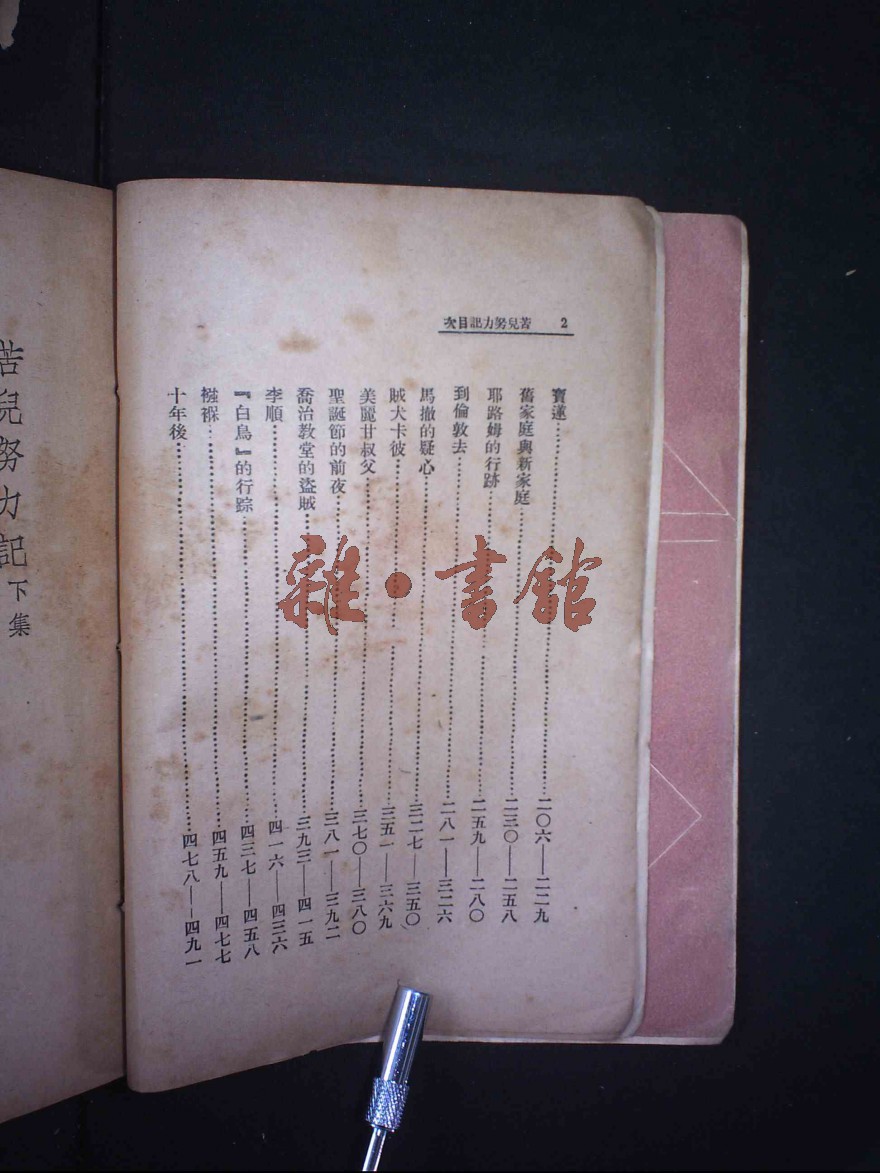 次目記力努兒苦 2
寶蓮……二〇六——二二九
舊家庭與新家庭……二三〇——二五八
耶路姆的行跡……二五九——二八〇
到倫敦去……二八一——三二六
馬撤的疑心……三二七——三五〇
賊犬卡彼……三五一——三六九
美麗甘叔父……三七〇——三八〇
聖誕節的前夜……三八一——三九二
喬治教堂的盜賊……三九三——四一五
李順……四一六——四三六
『白鳥』的行踪……四三七——四五八
襁褓……四五九——四七七
十年後……四七八——四九一
苦兒努力記下集
雜·書館